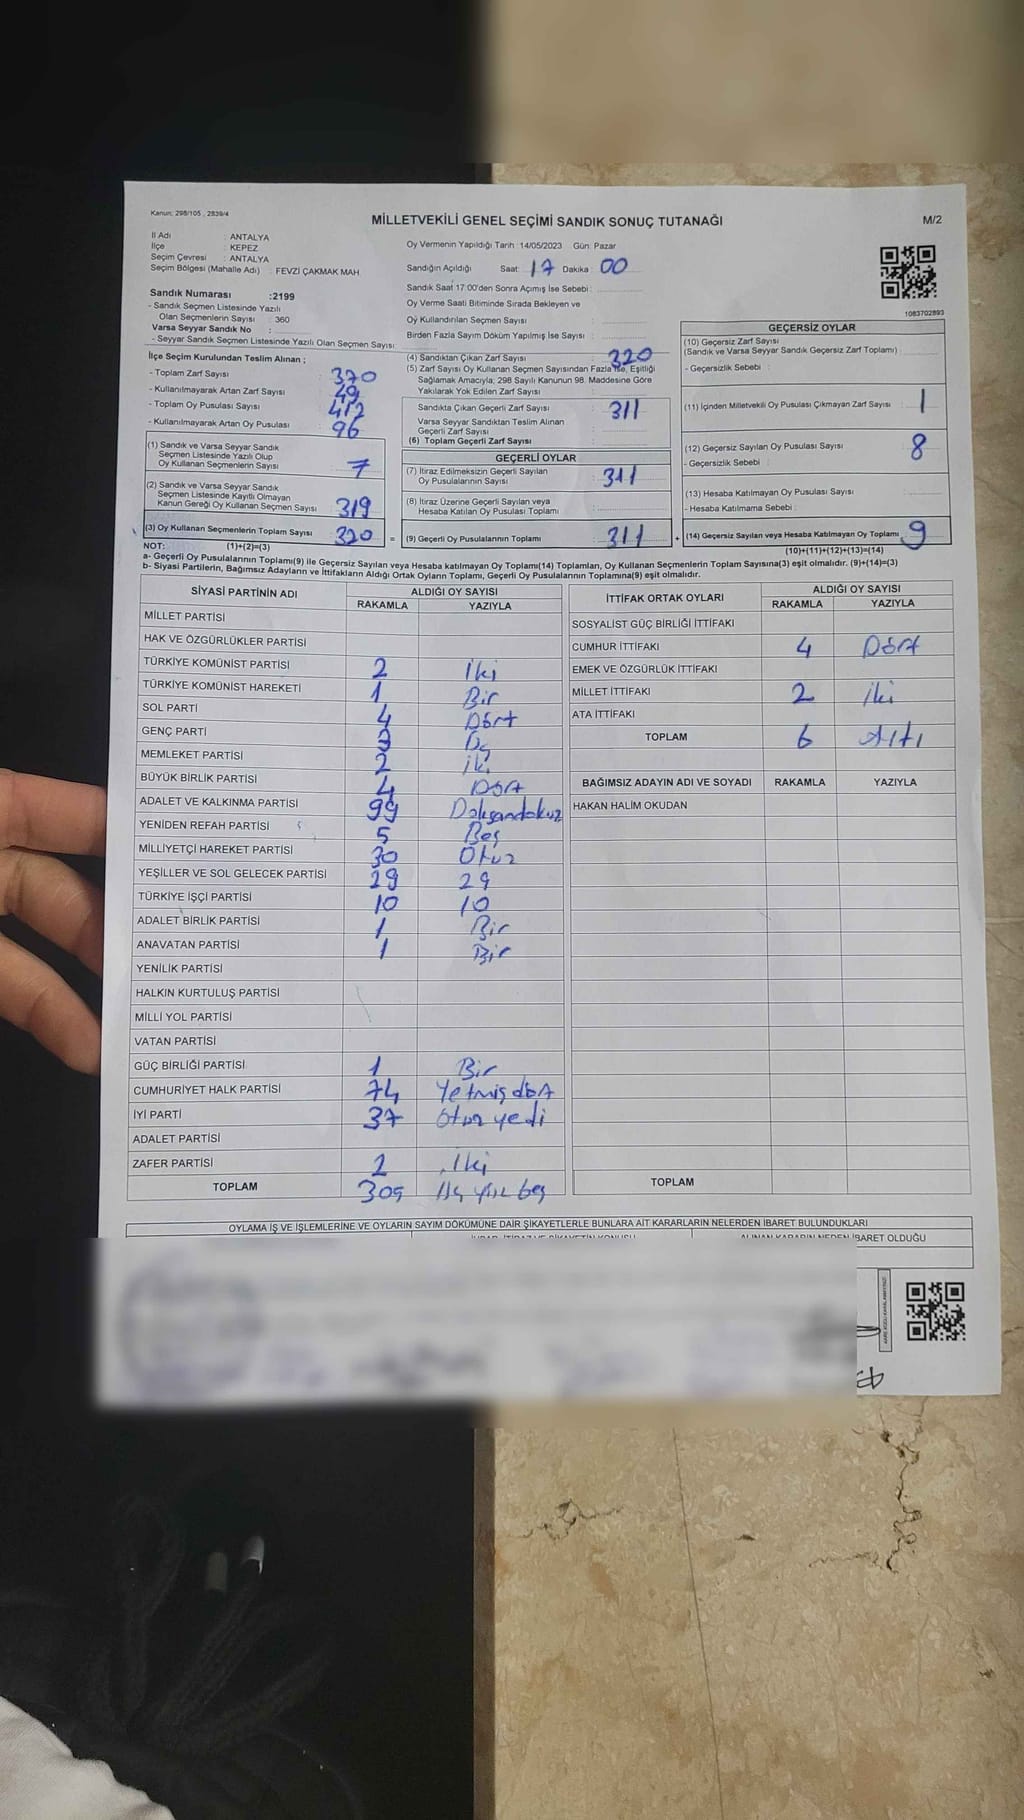 Kanun: 298/105 , 2839/4
MİLLETVEKİLİ GENEL SEÇİMİ SANDIK SONUÇ TUTANAĞI
M/2
İl Adı : ANTALYA
İlçe : KEPEZ
Seçim Çevresi : ANTALYA
Seçim Bölgesi (Mahalle Adı) : FEVZİ ÇAKMAK MAH
Oy Vermenin Yapıldığı Tarih :14/05/2023 Gün: Pazar
Sandığın Açıldığı Saat: 17 Dakika: 00
Sandık Saat 17:00'den Sonra Açımış İse Sebebi :
Oy Verme Saati Bitiminde Sırada Bekleyen ve
Oy Kullandırılan Seçmen Sayısı :
Birden Fazla Sayım Döküm Yapılmış İse Sayısı :
1083702893
Sandık Numarası :2199
- Sandık Seçmen Listesinde Yazılı
Olan Seçmenlerin Sayısı : 360
Varsa Seyyar Sandık No :
- Seyyar Sandık Seçmen Listesinde Yazılı Olan Seçmen Sayısı
İlçe Seçim Kurulundan Teslim Alınan ;
- Toplam Zarf Sayısı : 370
- Kullanılmayarak Artan Zarf Sayısı : 49
- Toplam Oy Pusulası Sayısı :
- Kullanılmayarak Artan Oy Pusulası : 96
(1) Sandık ve Varsa Seyyar Sandık
Seçmen Listesinde Yazılı Olup
Oy Kullanan Seçmenlerin Sayısı : 7
(2) Sandık ve Varsa Seyyar Sandık
Seçmen Listesinde Kayıtlı Olmayan
Kanun Gereği Oy Kullanan Seçmen Sayısı : 319
(3) Oy Kullanan Seçmenlerin Toplam Sayısı : 320 =
(4) Sandıktan Çıkan Zarf Sayısı : 320
(5) Zarf Sayısı Oy Kullanan Seçmen Sayısından Fazla İse, Eşitliği
Sağlamak Amacıyla, 298 Sayılı Kanunun 98. Maddesine Göre
Yakılarak Yok Edilen Zarf Sayısı :
Sandıkta Çıkan Geçerli Zarf Sayısı : 311
Varsa Seyyar Sandıktan Teslim Alınan
Geçerli Zarf Sayısı :
(6) Toplam Geçerli Zarf Sayısı :
GEÇERLİ OYLAR
(7) İtiraz Edilmeksizin Geçerli Sayılan
Oy Pusulalarının Sayısı : 311
(8) İtiraz Üzerine Geçerli Sayılan veya
Hesaba Katılan Oy Pusulası Toplamı :
(9) Geçerli Oy Pusulalarının Toplamı : 311 +
GEÇERSİZ OYLAR
(10) Geçersiz Zarf Sayısı
(Sandık ve Varsa Seyyar Sandık Geçersiz Zarf Toplamı) :
- Geçersizlik Sebebi :
(11) İçinden Milletvekili Oy Pusulası Çıkmayan Zarf Sayısı : 1
(12) Geçersiz Sayılan Oy Pusulası Sayısı : 8
- Geçersizlik Sebebi :
(13) Hesaba Katılmayan Oy Pusulası Sayısı :
- Hesaba Katılmama Sebebi :
(14) Geçersiz Sayılan veya Hesaba Katılmayan Oy Toplamı : 9
NOT: (1)+(2)=(3)
(10)+(11)+(12)+(13)=(14)
a- Geçerli Oy Pusulalarının Toplamı(9) ile Geçersiz Sayılan veya Hesaba katılmayan Oy Toplamı(14) Toplamları, Oy Kullanan Seçmenlerin Toplam Sayısına(3) eşit olmalıdır. (9)+(14)=(3)
b- Siyasi Partilerin, Bağımsız Adayların ve İttifakların Aldığı Ortak Oyların Toplamı, Geçerli Oy Pusulalarının Toplamına(9) eşit olmalıdır.
SİYASİ PARTİNİN ADI ALDIĞI OY SAYISI
RAKAMLA YAZIYLA
MİLLET PARTİSİ
HAK VE ÖZGÜRLÜKLER PARTİSİ
TÜRKİYE KOMÜNİST PARTİSİ 2 İki
TÜRKİYE KOMÜNİST HAREKETİ 1 Bir
SOL PARTİ 4 Dört
GENÇ PARTİ 3 Üç
MEMLEKET PARTİSİ 2 iki
BÜYÜK BİRLİK PARTİSİ 4 Dört
ADALET VE KALKINMA PARTİSİ 99 Doksandokuz
YENİDEN REFAH PARTİSİ 5 Beş
MİLLİYETÇİ HAREKET PARTİSİ 30 Otuz
YEŞİLLER VE SOL GELECEK PARTİSİ 29 29
TÜRKİYE İŞÇİ PARTİSİ 10 10
ADALET BİRLİK PARTİSİ 1 Bir
ANAVATAN PARTİSİ 1 Bir
YENİLİK PARTİSİ
HALKIN KURTULUŞ PARTİSİ
MİLLİ YOL PARTİSİ
VATAN PARTİSİ
GÜÇ BİRLİĞİ PARTİSİ 1 Bir
CUMHURİYET HALK PARTİSİ 74 Yetmişdört
İYİ PARTİ 37 Otuz yedi
ADALET PARTİSİ
ZAFER PARTİSİ 2 İki
TOPLAM 305 Üç yüz beş
İTTİFAK ORTAK OYLARI ALDIĞI OY SAYISI
RAKAMLA YAZIYLA
SOSYALİST GÜÇ BİRLİĞİ İTTİFAKI
CUMHUR İTTİFAKI 4 Dört
EMEK VE ÖZGÜRLÜK İTTİFAKI
MİLLET İTTİFAKI 2 iki
ATA İTTİFAKI
TOPLAM 6 Altı
BAĞIMSIZ ADAYIN ADI VE SOYADI RAKAMLA YAZIYLA
HAKAN HALİM OKUDAN
TOPLAM
OYLAMA İŞ VE İŞLEMLERİNE VE OYLARIN SAYIM DÖKÜMÜNE DAİR ŞİKAYETLERLE BUNLARA AİT KARARLARIN NELERDEN İBARET BULUNDUKLARI
ALINAN KARARIN NEDEN İBARET OLDUĞU